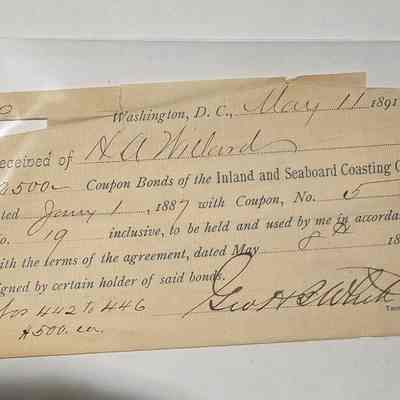 Washington, D. C., May 11 1891
eceived of H A Willard
2500 Coupon Bonds of the Inland and Seaboard Coasting C
ted Jany 1, 1887 with Coupon, No. 5
o. 19 inclusive, to be held and used by me in accorda
with the terms of the agreement, dated May 8th 18
igned by certain holder of said bonds.
Nos 442 to 446 Geo H B White
$500. ea.